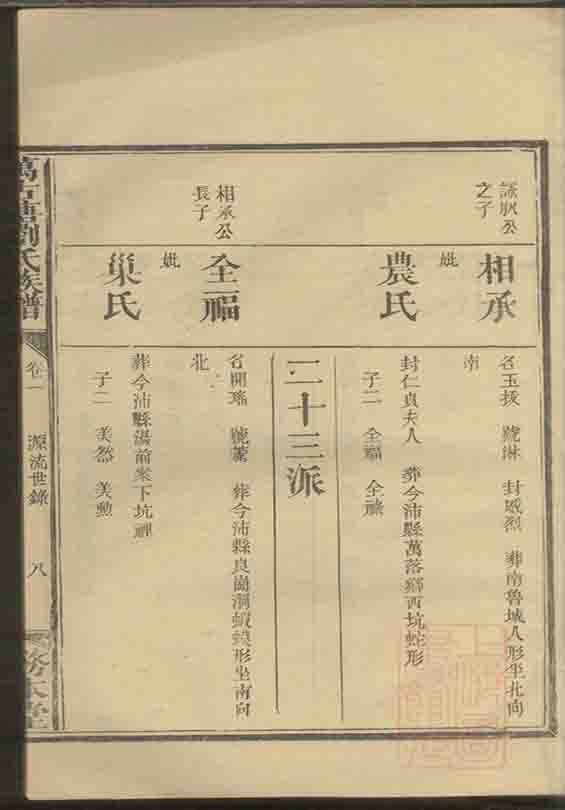 詠狄公
之子
相承
妣
農氏
名玉拔 號琳 封威烈 葬南魯城人形坐北向
南
封仁貞夫人 葬今沛縣萬落鄉西坑蛇形
子二 全福 全祿
二十三派
相承公
長子
全福
妣
巢氏
名開瑤 號 葬今沛縣良崗洞蝦蟆形坐南向
北
葬今沛縣湛前案下坑裡
子二 美然 美勳
劉氏族譜
卷一
源流世錄
八
務本堂